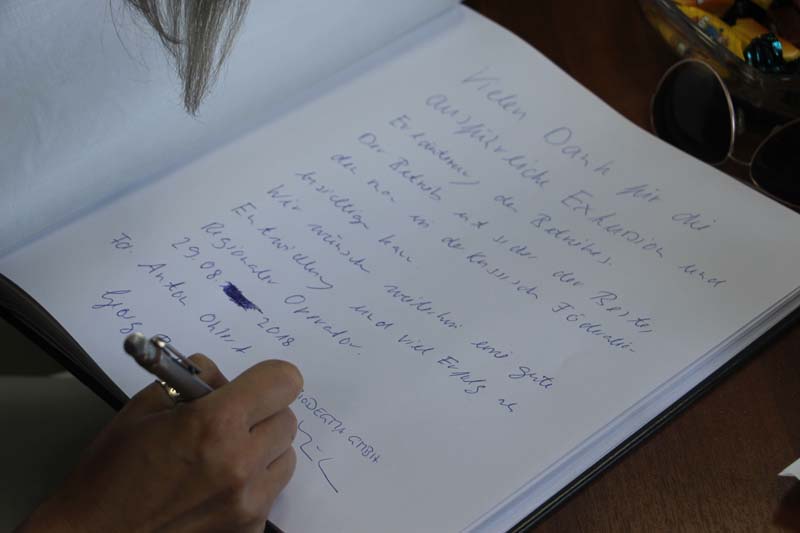 Vielen Dank für die
ausführliche Exkursion und
Erläuterung des Betriebes.
Der Betrieb ist sicher der Beste,
den man in der Russisch Föderation
besichtigen kann
Wir wünsch weiterhin eine gute
Entwicklung und viel Erfolg als
Regionaler Operator.
29.08 2018
Fa. Anton Ohlert
Georg
GMBH